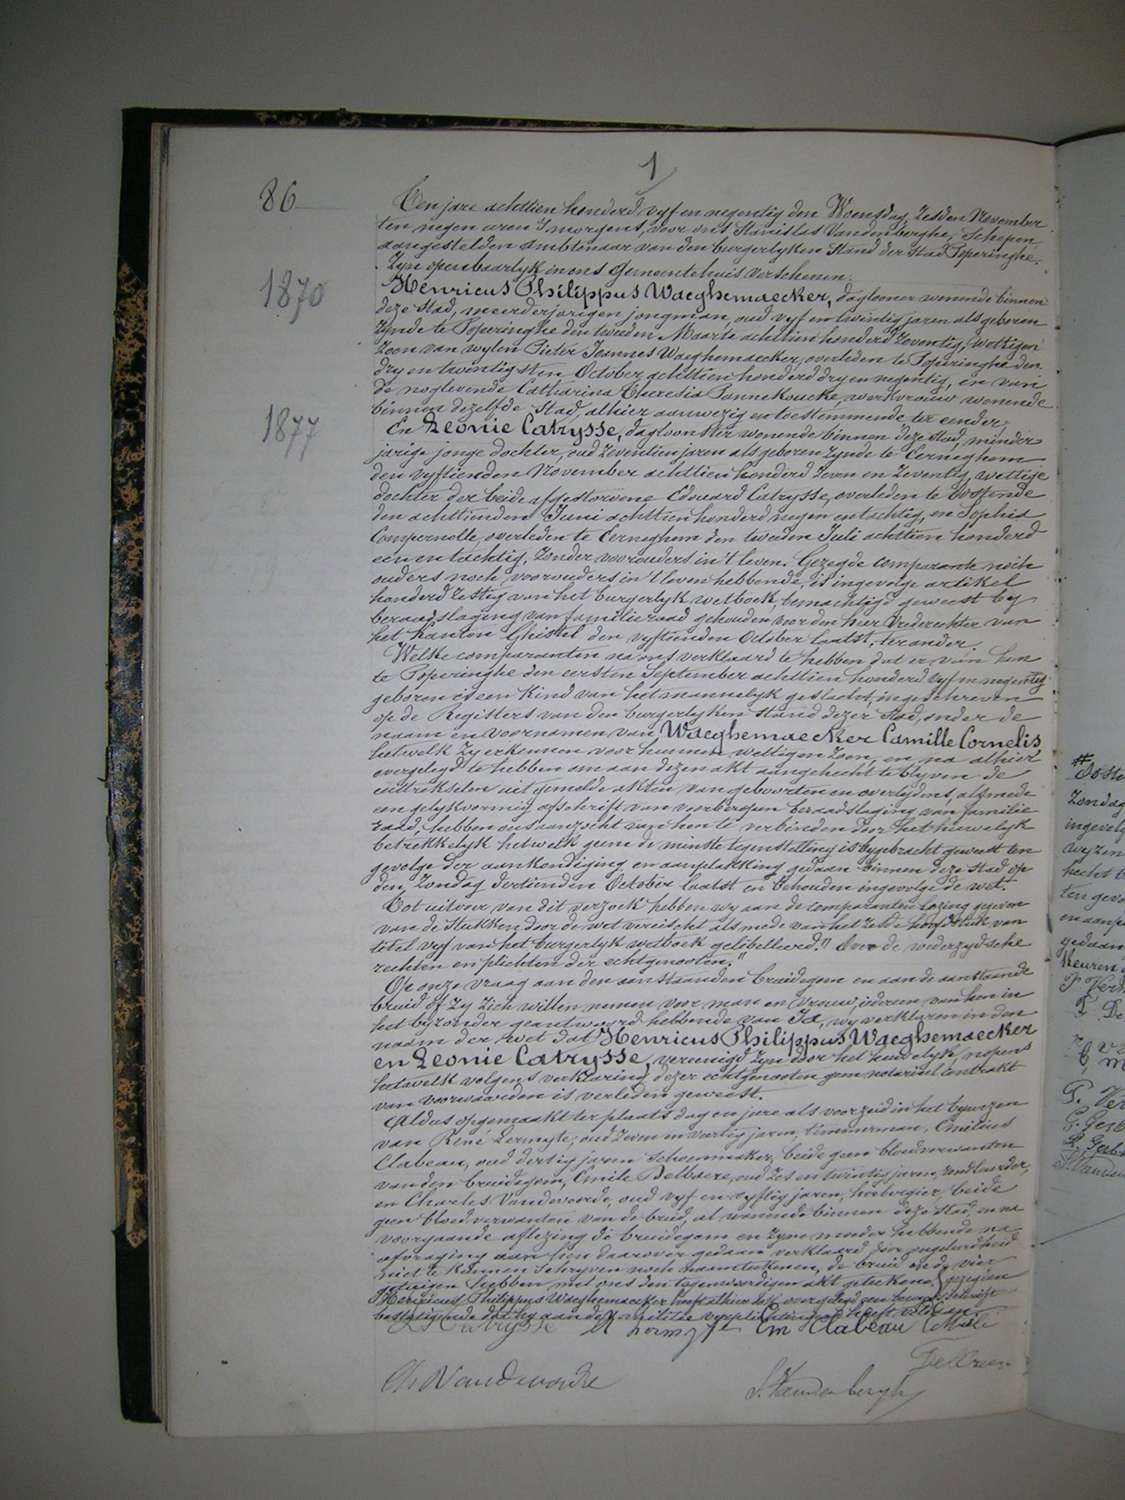 1
86
1870
1877
Ten jare achttien honderd vyf en negentig den Woensdag zesden November
ten negen uren 's morgens, voor ons Stanislas Vandenberghe, Schepen
aangestelden ambtenaar van den burgerlyken Stand der Stad Poperinghe.
Zyn openbaarlyk in ons Gemeentehuis verschenen.
Henricus Philippus Waeghemaecker, daglooner wonende binnen
deze Stad, meerderjarigen jongman, oud vyf en twintig jaren als geboren
zynde te Poperinghe den tweeden Maarte achttien honderd zeventig, wettigen
zoon van wylen Pieter Joannes Waeghemaecker, overleden te Poperinghe den
dry en twintigsten October achttien honderd dry en negentig, en van
de noglevende Catharina Theresia Pannekoucke, werkvrouw wonende
binnen dezelfde Stad, alhier aanwezig en toestemmende ter eender.
En Leonie Catrysse, dagloonster wonende binnen deze stad, minder
jarige jonge dochter, oud zeventien jaren als geboren zynde te Eerneghem
den vyftienden November achttien honderd zeven en zeventig, wettige
dochter der beide afgestorvene Edouard Catrysse, overleden te Oostende
den achttienden Juni achttien honderd negen en tachtig, en Sophia
Compernolle, overleden te Eerneghem den tweeden Juli achttien honderd
een en tachtig, zonder voorouders in 't leven. Gezegde comparante noch
ouders noch voorouders in 't leven hebbende, is ingevolge artikel
honderd zestig van het burgerlyk wetboek, bemachtigd geweest by
beraadslaging van familieraad gehouden voor den heer Vrederechter van
het Kanton Ghistel den vyftienden October laatst, ter ander.
Welke comparanten na ons verklaard te hebben dat er van hen
te Poperinghe den eersten September achttien honderd vyf en negentig
geboren is een kind van het mannelyk geslacht, ingeschreven
op de Registers van den burgerlyken stand dezer Stad, onder de
naam en voornamen van Waeghemaecker Camille Cornelis
hetwelk zy erkennen voor hunnen wettigen zoon, en na alhier
overgelegd te hebben om aan dezen akt aangehecht te blyven de
uittreksels uit gemelde akten van geboorten en overlydens, alsmede
een gelykvormig afschrift van voorbergen beraadslaging van familie
raad, hebben ons aanzocht van hen te verbinden door het huwelyk
betrekkelyk hetwelk geene de minste tegenstelling is bygebracht geweest ten
gevolge der aankondiging en aanplakking gedaan binnen deze Stad op
den Zondag dertienden October laatst en behouden ingevolge de wet.
Tot uitvoer van dit verzoek hebben wy aan de comparanten lezing gegeven
van de stukken door de wet vereischt als mede van het zesde hoofdstuk van
titel vyf van het burgerlyk wetboek gelibelleerd: "Over de wederzydsche
rechten en plichten der echtgenooten."
Op onze vraag aan den aanstaanden bruidegom en aan de aanstaande
bruid of zy zich willen nemen voor man en vrouw, iedereen van hen in
het byzonder geantwoord hebbende van Ja, wy verklaren in den
naam der wet dat Henricus Philippus Waeghemaecker
en Leonie Catrysse, vereenigd zyn door het huwelyk, nopens
hetwelk volgens verklaring dezer echtgenooten geen notarieel contrakt
van voorwaarden is verleden geweest.
Aldus opgemaakt ter plaats dag en jare als voorzeid in het bywezen
van René Lermyte, oud zeven en veertig jaren, timmerman, Emilius
Clabeau, oud dertig jaren schoenmaker, beide geen bloedverwanten
van den bruidegom, Emile Delbaere, oud zes en twintig jaren, landbouwer,
en Charles Vandevoorde, oud vyf en vyftig jaren, herbergier, beide
geen bloedverwanten van de bruid, al wonende binnen deze Stad, en na
voorgaande aflezing de bruidegom en zyne moeder hebbende na
afvraging aan hen daarover gedaan verklaard door ongeleerdheid
niet te kunnen schryven noch naamteekenen, de bruid en de vier
getuigen hebben met ons den tegenwoordigen akt geteekend, gezegden
Henricus Philippus Waeghemaecker heeft alhier
L Catrysse Em Clabeau
Ch Vandevoorde
S. Vandenberghe
Zondag
ingevolg
en aanp
gedaan